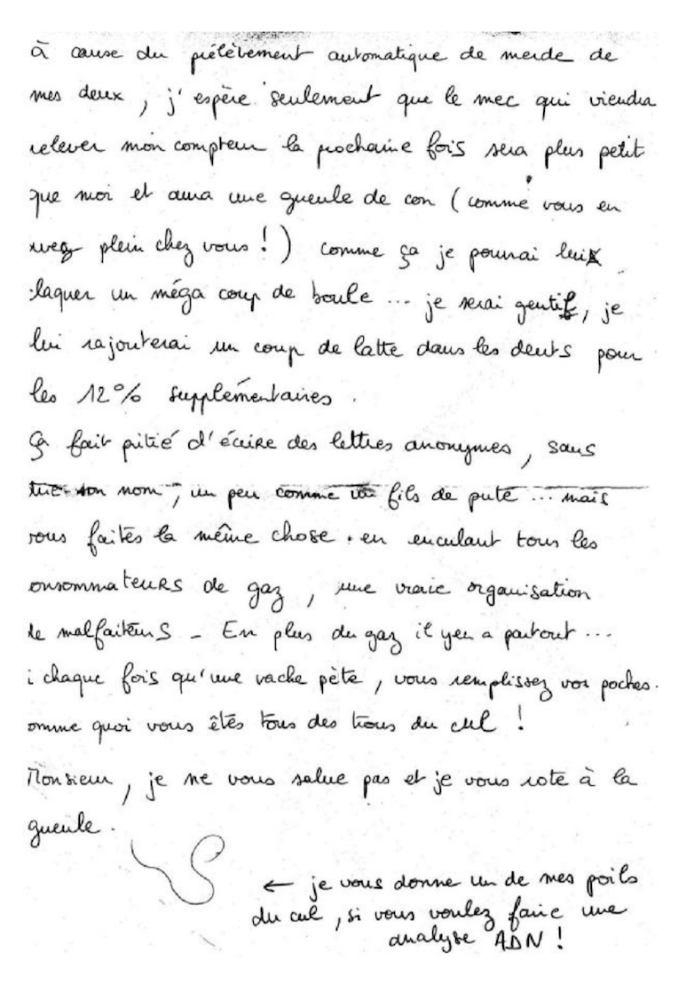 à cause du prélèvement automatique de merde de
mes deux, j'espère seulement que le mec qui viendra
relever mon compteur la prochaine fois sera plus petit
que moi et aura une gueule de con (comme vous en
avez plein chez vous !) comme ça je pourrai lui
claquer un méga coup de boule ... je serai gentil, je
lui rajouterai un coup de latte dans les dents pour
les 12% supplémentaires.
ça fait pitié d'écrire des lettres anonymes, sans
son nom, un peu comme un fils de pute ... mais
vous faites la même chose. en enculant tous les
onsommateurs de gaz, une vraie organisation
de malfaiteurs - En plus du gaz il yen a partout ...
i chaque fois qu'une vache pète, vous remplissez vos poches.
omme quoi vous êtes tous des trous du cul !
Monsieur, je ne vous salue pas et je vous rote à la
gueule.
← je vous donne un de mes poils
du cul, si vous voulez faire une
analyse ADN !